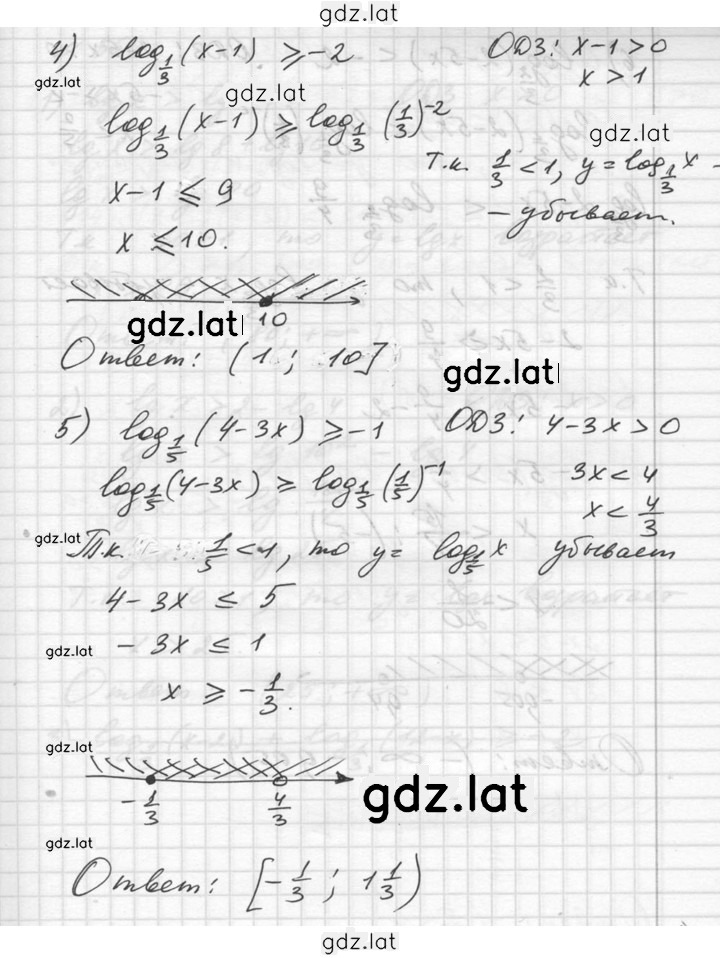 gdz.lat
4) log_{1/3}(x-1) ≥ -2 ОДЗ: x-1>0
gdz.lat x>1
gdz.lat
log_{1/3}(x-1) ≥ log_{1/3}(1/3)^{-2} gdz.lat
Т.к. 1/3 < 1, y = log_{1/3} x -
x-1 ≤ 9 - убывает.
x ≤ 10.
10
gdz.lat
Ответ: (1; 10] gdz.lat
5) log_{1/5}(4-3x) ≥ -1 ОДЗ: 4-3x>0
log_{1/5}(4-3x) ≥ log_{1/5}(1/5)^{-1} 3x<4
x < 4/3
gdz.lat Т.к. 1/5 < 1, то y = log_{1/5} x убывает
4-3x ≤ 5
gdz.lat -3x ≤ 1
x ≥ -1/3.
gdz.lat
-1/3 4/3 gdz.lat
gdz.lat
Ответ: [-1/3; 1 1/3)
gdz.lat